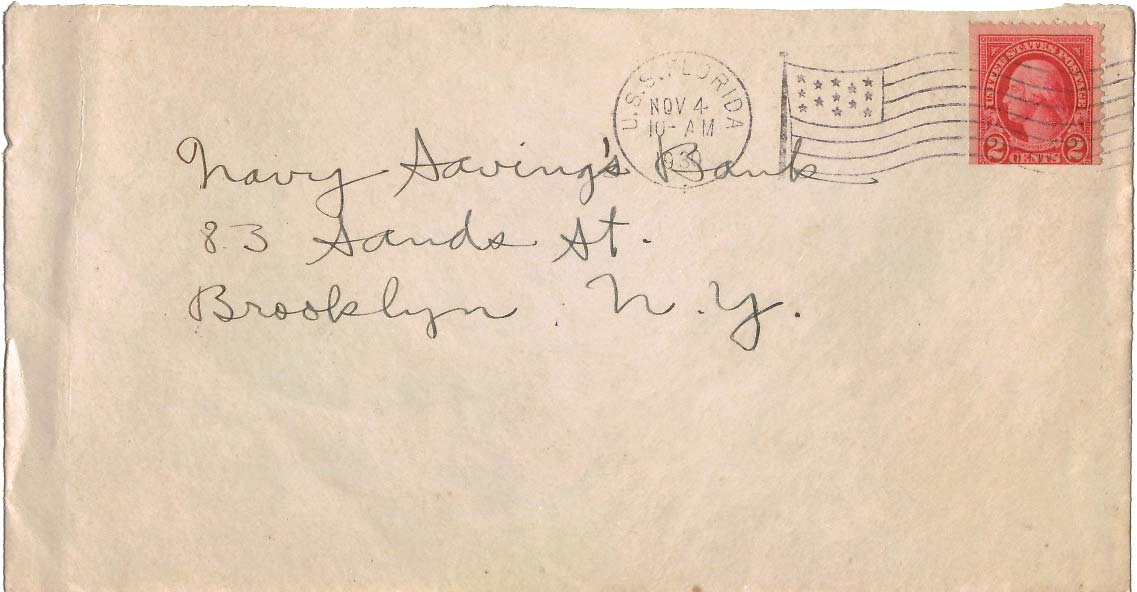 U.S.S. FLORIDA
NOV 4
10-AM
UNITED STATES POSTAGE
2 CENTS 2
Navy Saving's Bank
83 Sands St.
Brooklyn. N.Y.